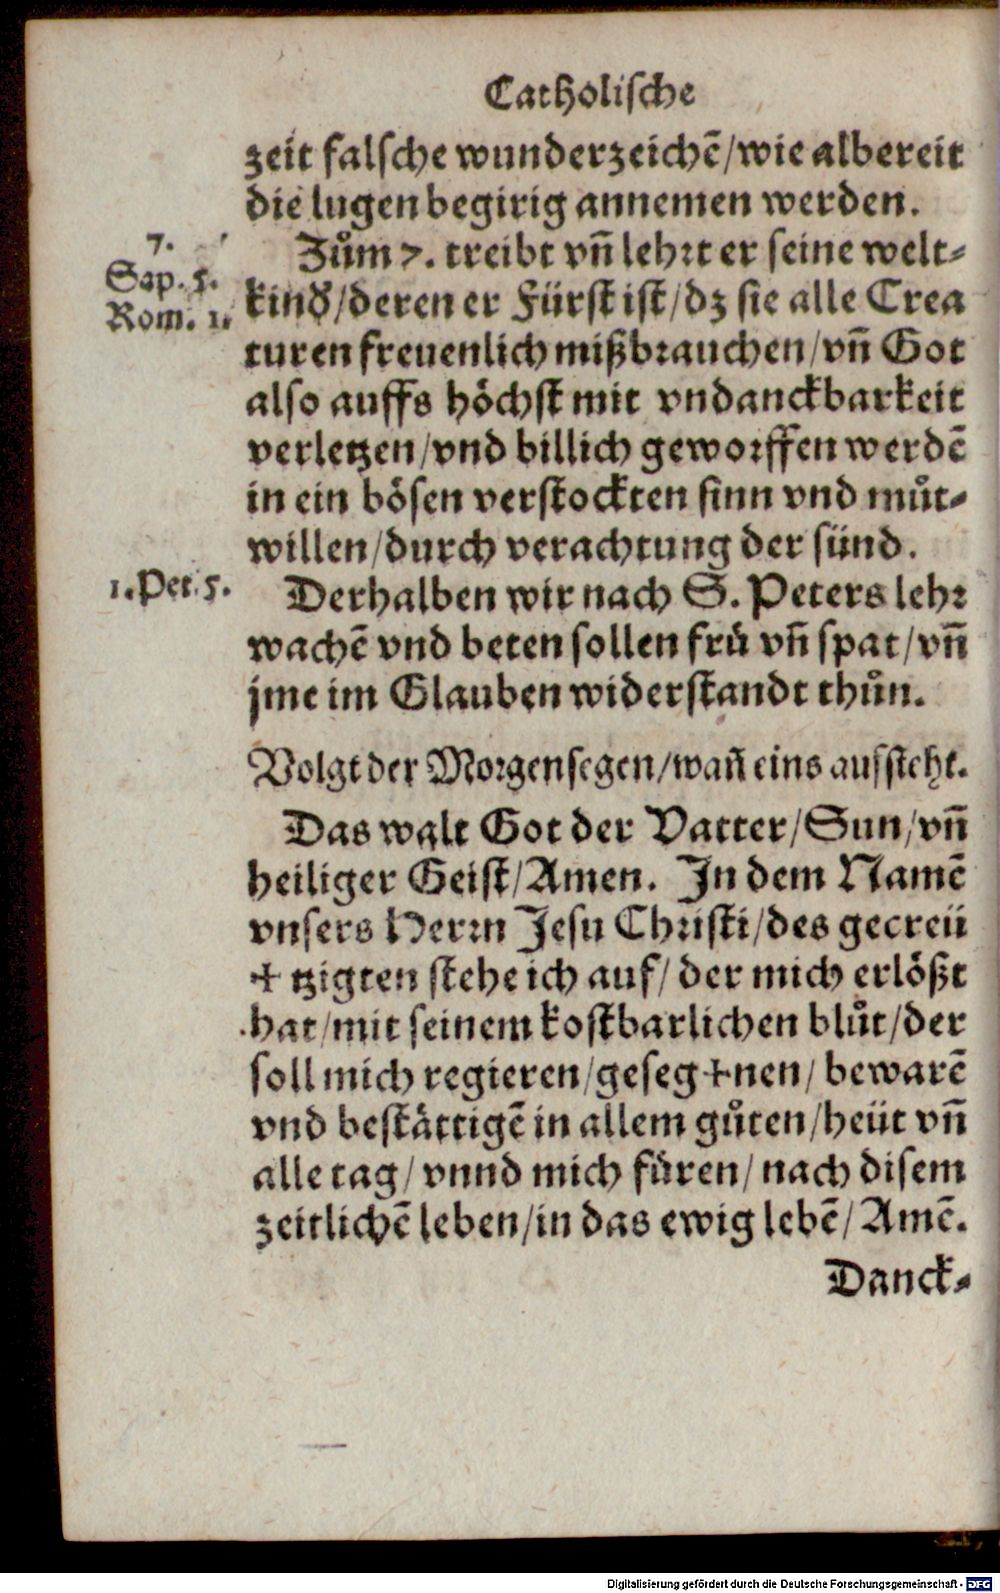 Catholische
zeit falsche wunderzeichē/wie albereit
die lugen begirig annemen werden.
7.
Sap. 5.
Rom. 1.
Zům 7. treibt vñ lehrt er seine welt-
kind/deren er Fürst ist/dz sie alle Crea
turen freuenlich mißbrauchen/vñ Got
also auffs höchst mit vndanckbarkeit
verletzen/vnd billich geworffen werdē
in ein bösen verstockten sinn vnd můt-
willen/durch verachtung der sünd.
1. Pet. 5.
Derhalben wir nach S. Peters lehr
wachē vnd beten sollen frü vñ spat/vñ
jme im Glauben widerstandt thůn.
Volgt der Morgensegen/wañ eins aufsteht.
Das walt Got der Vatter/Sun/vñ
heiliger Geist/Amen. In dem Namē
vnsers Herrn Jesu Christi/des gecreü
+ tzigten stehe ich auf/ der mich erlößt
hat/mit seinem kostbarlichen blůt/der
soll mich regieren/geseg+nen/ bewarē
vnd bestättigē in allem gůten/heüt vñ
alle tag/ vnnd mich füren/ nach disem
zeitlichē leben/in das ewig lebē/ Amē.
Danck-
Digitalisierung gefördert durch die Deutsche Forschungsgemeinschaft - DFG